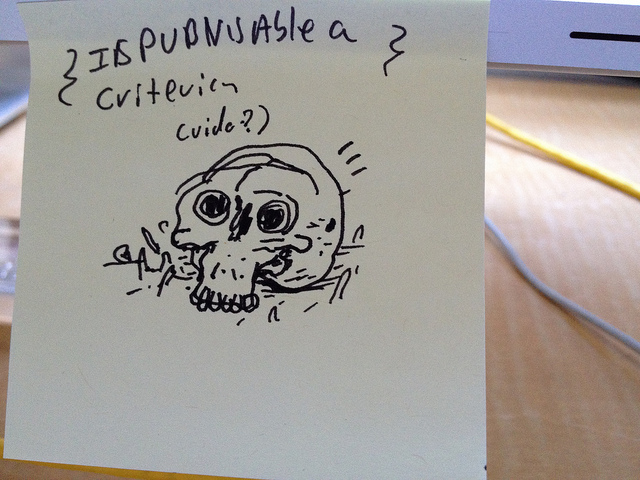 { IS PUDNUSABle a }
Criterion
cuida?)